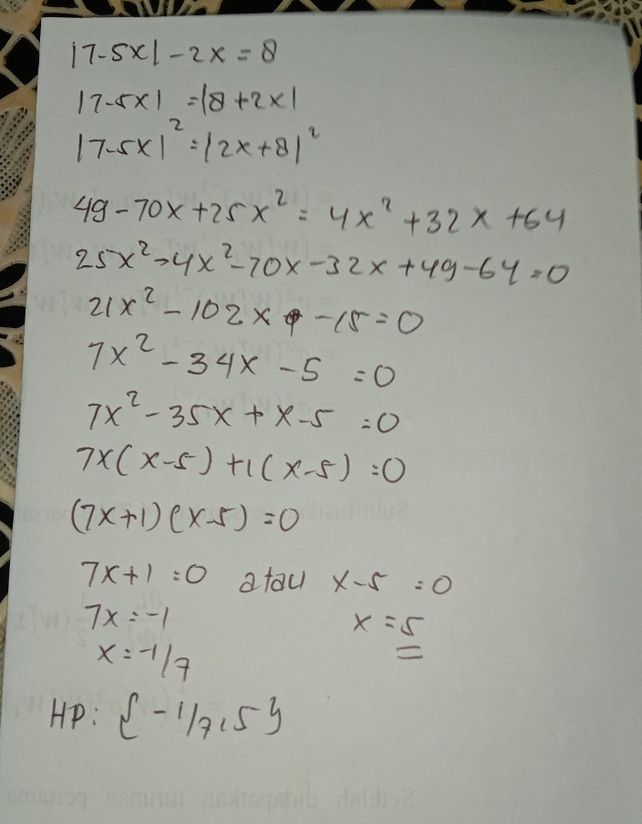 |7-5x| - 2x = 8
|7-5x| = |8+2x|
|7-5x|² = |2x+8|²
49-70x+25x² = 4x²+32x+64
25x²-4x²-70x-32x+49-64=0
21x²-102x -15=0
7x²-34x-5 =0
7x²-35x+x-5 =0
7x(x-5)+1(x-5)=0
(7x+1)(x-5)=0
7x+1=0 atau x-5=0
7x=-1 x=5
x=-1/7
HP: {-1/7,5}